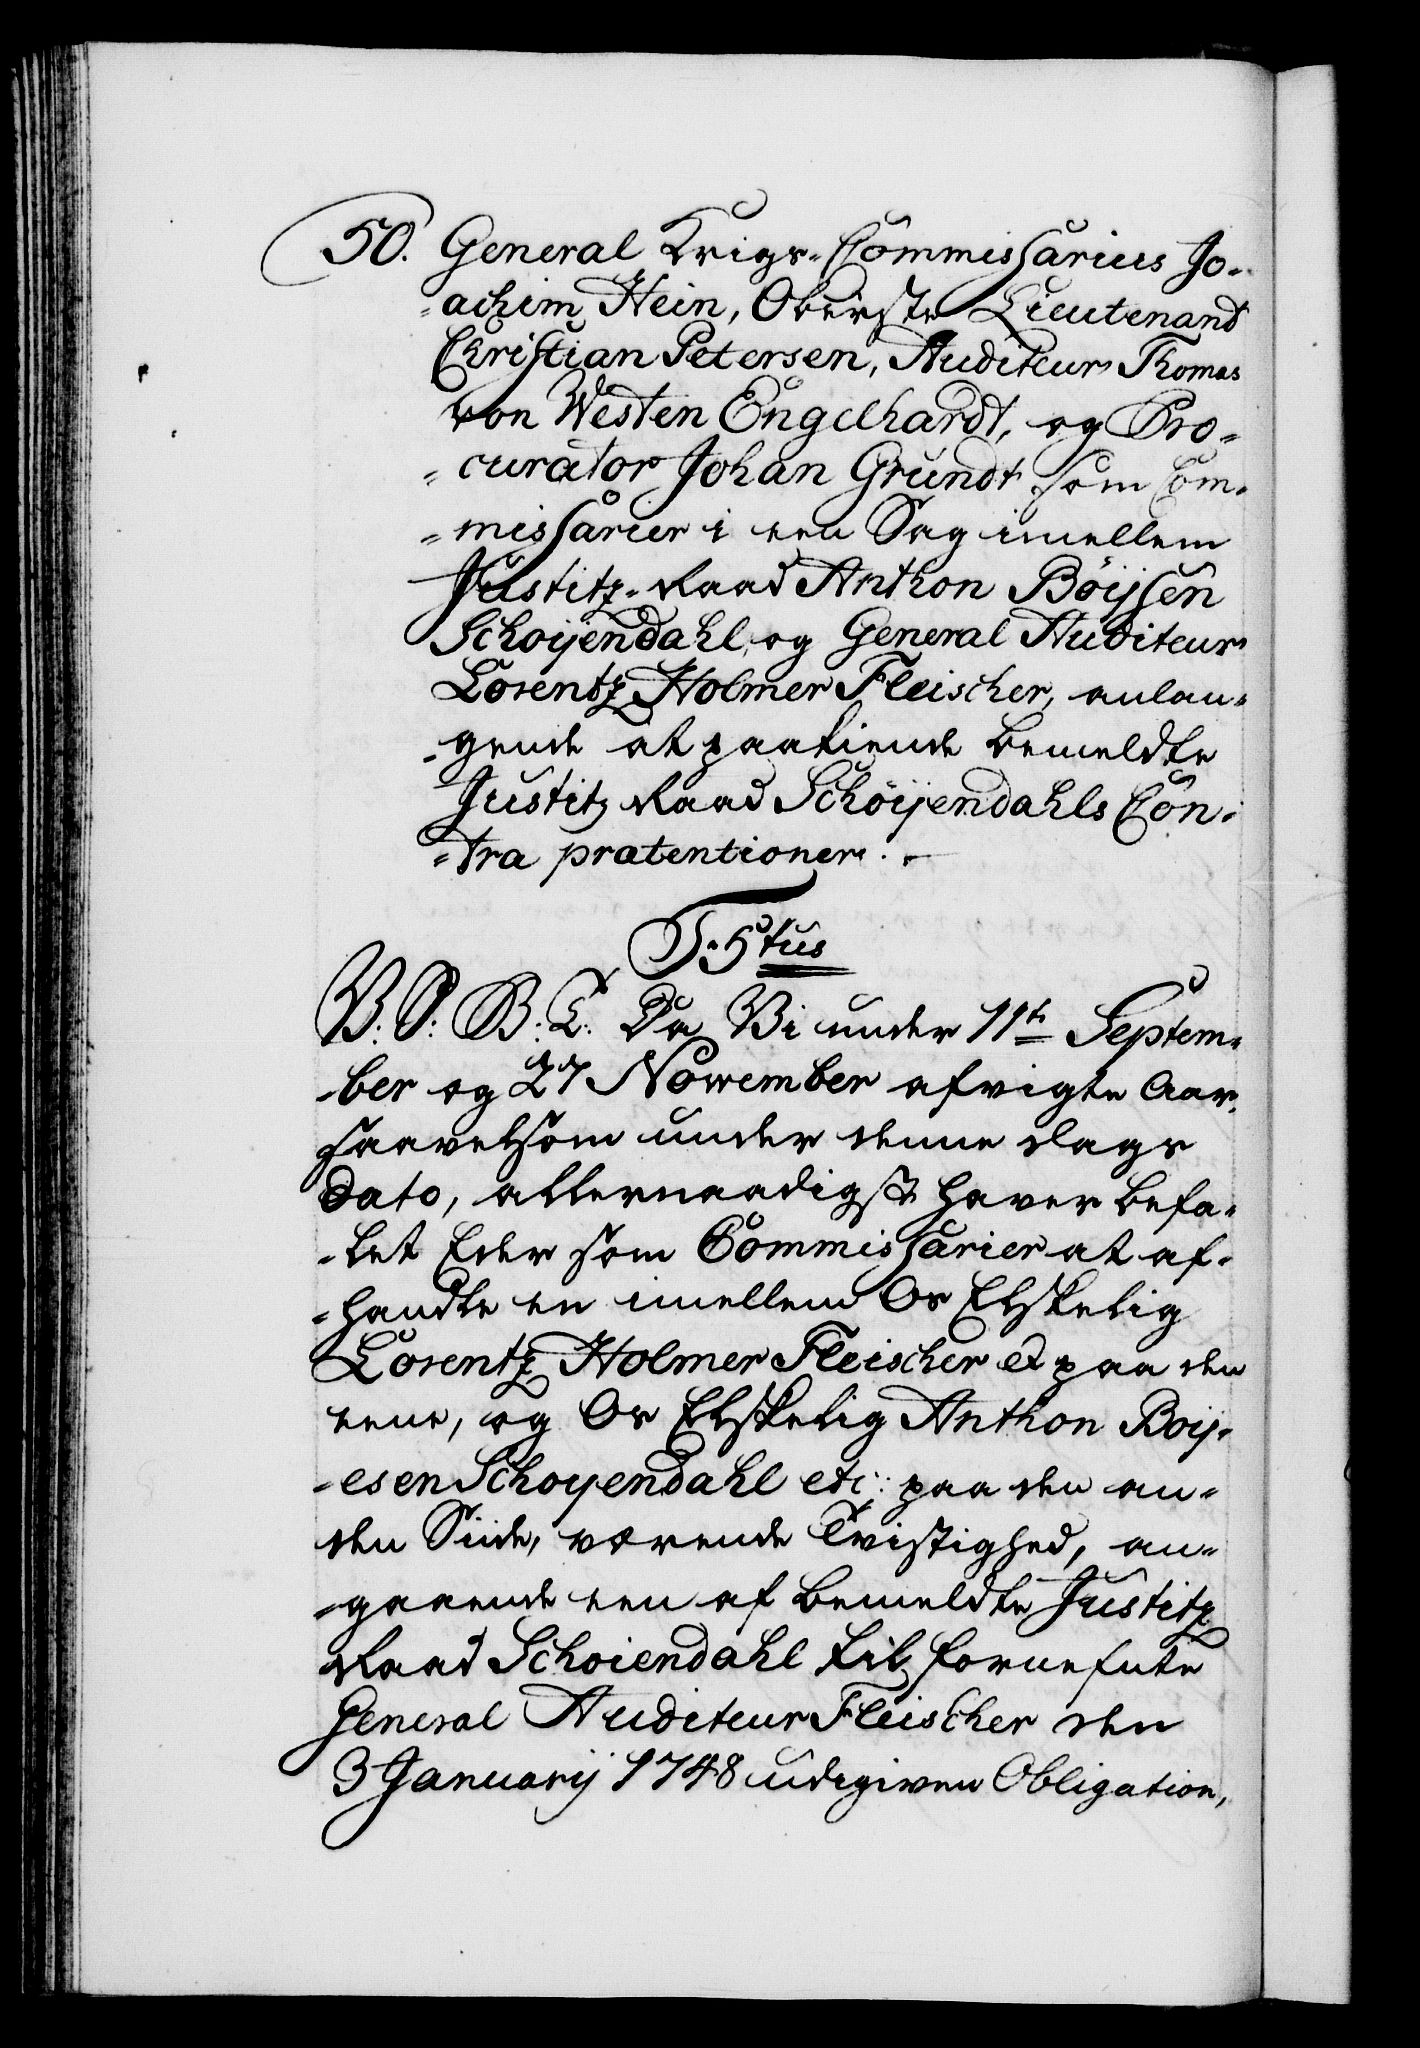 50. General Krigs-Commissarius Jo-
-achim Hein, Oberste Lieutenand
Christian Petersen, Auditeur Thomas
von Westen Engelhardt, og Pro-
-curator Johan Grundt som Com-
-missarier i een Sag imellem
Justitz-Raad Anthon Böijsen
Schoijendahl, og General Auditeur
Lorentz Holmer Fleischer, anlan-
-gende at paakiende bemeldte
Justitz Raad Schöijendahls Con-
-tra prætentioner.
T. 5tus
V. S. G. T. Da Vi under 11te Septem-
-ber og 27 November afvigte Aar,
saavelsom under denne Dags
Dato, allernaadigst haver befa-
-let Eder som Commissarier at af-
-handle en imellem Os Elskelig
Lorentz Holmer Fleischer et paa den
eene, og Os Elskelig Anthon Boij-
-esen Schoyendahl etc: paa den an-
den Siide, værende Tvistighed, an-
-gaaende een af bemeldte Justitz
Raad Schoiendahl til fornefnte
General Auditeur Fleischer den
3 Januarij 1748 udgiven Obligation,